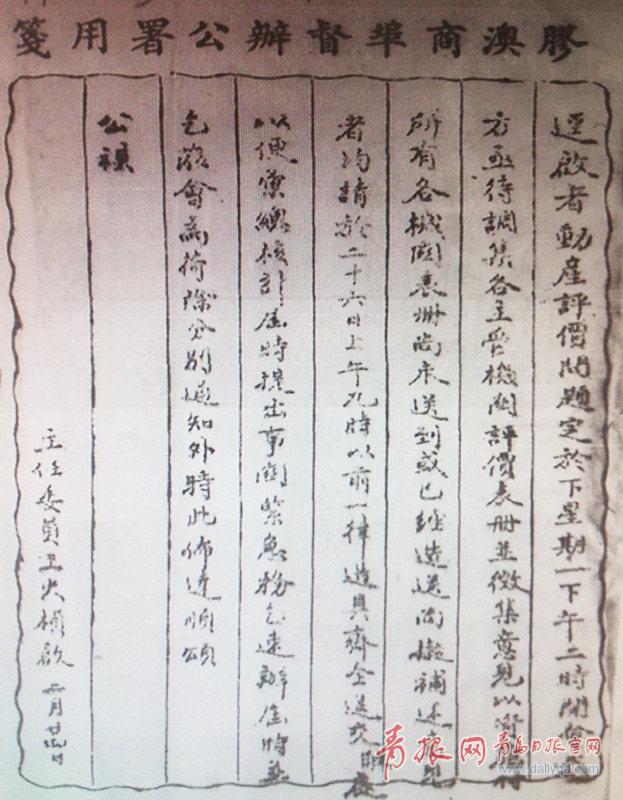 膠澳商埠督辦公署用箋
逕啟者動產評價問題定於下星期一下午二時開
方亟待調集各主管機關評價表冊並徵集意見以
所有各機關表冊尚未送到或已經造送尚擬補述意見
者均請於二十六日上午九時以前一律造具齊全送交
以便彙總核計屆時提出事關緊急務乞速辦屆時並
乞蒞會為荷除分別通知外特此佈達順頌
公祺
主任委員王大楨啟 二月廿四日
青报网 青岛日报官网
www.dailyqd.com